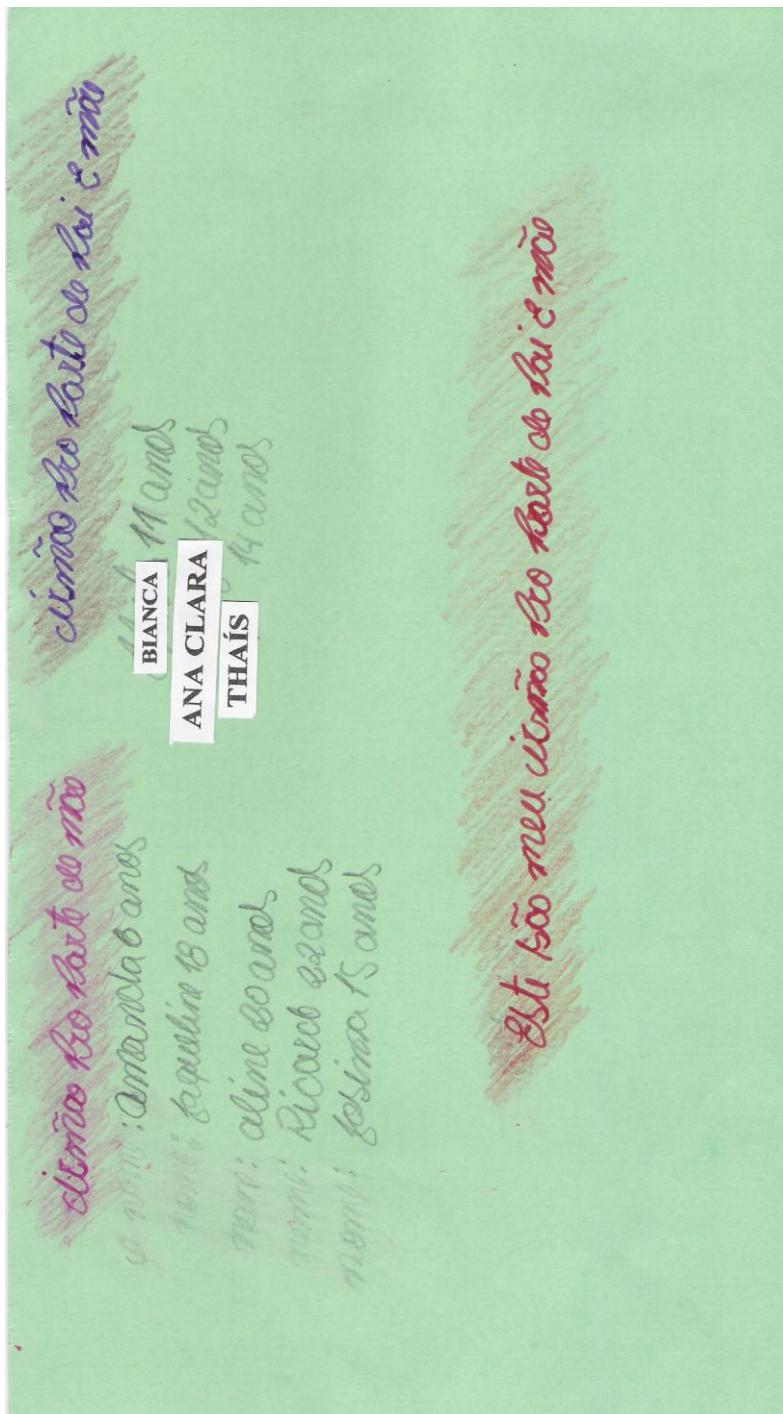 irmãos pro parte de mãe
nome: Amanda 6 anos
nome: Jaqueline 18 anos
nome: aline 20 anos
nome: Ricardo 22 anos
nome: Josima 15 anos
irmãos pro parte de pai e mãe
BIANCA 11 anos
ANA CLARA 12 anos
THAÍS 14 anos
Este são meu irmãos pro parte de pai e mãe